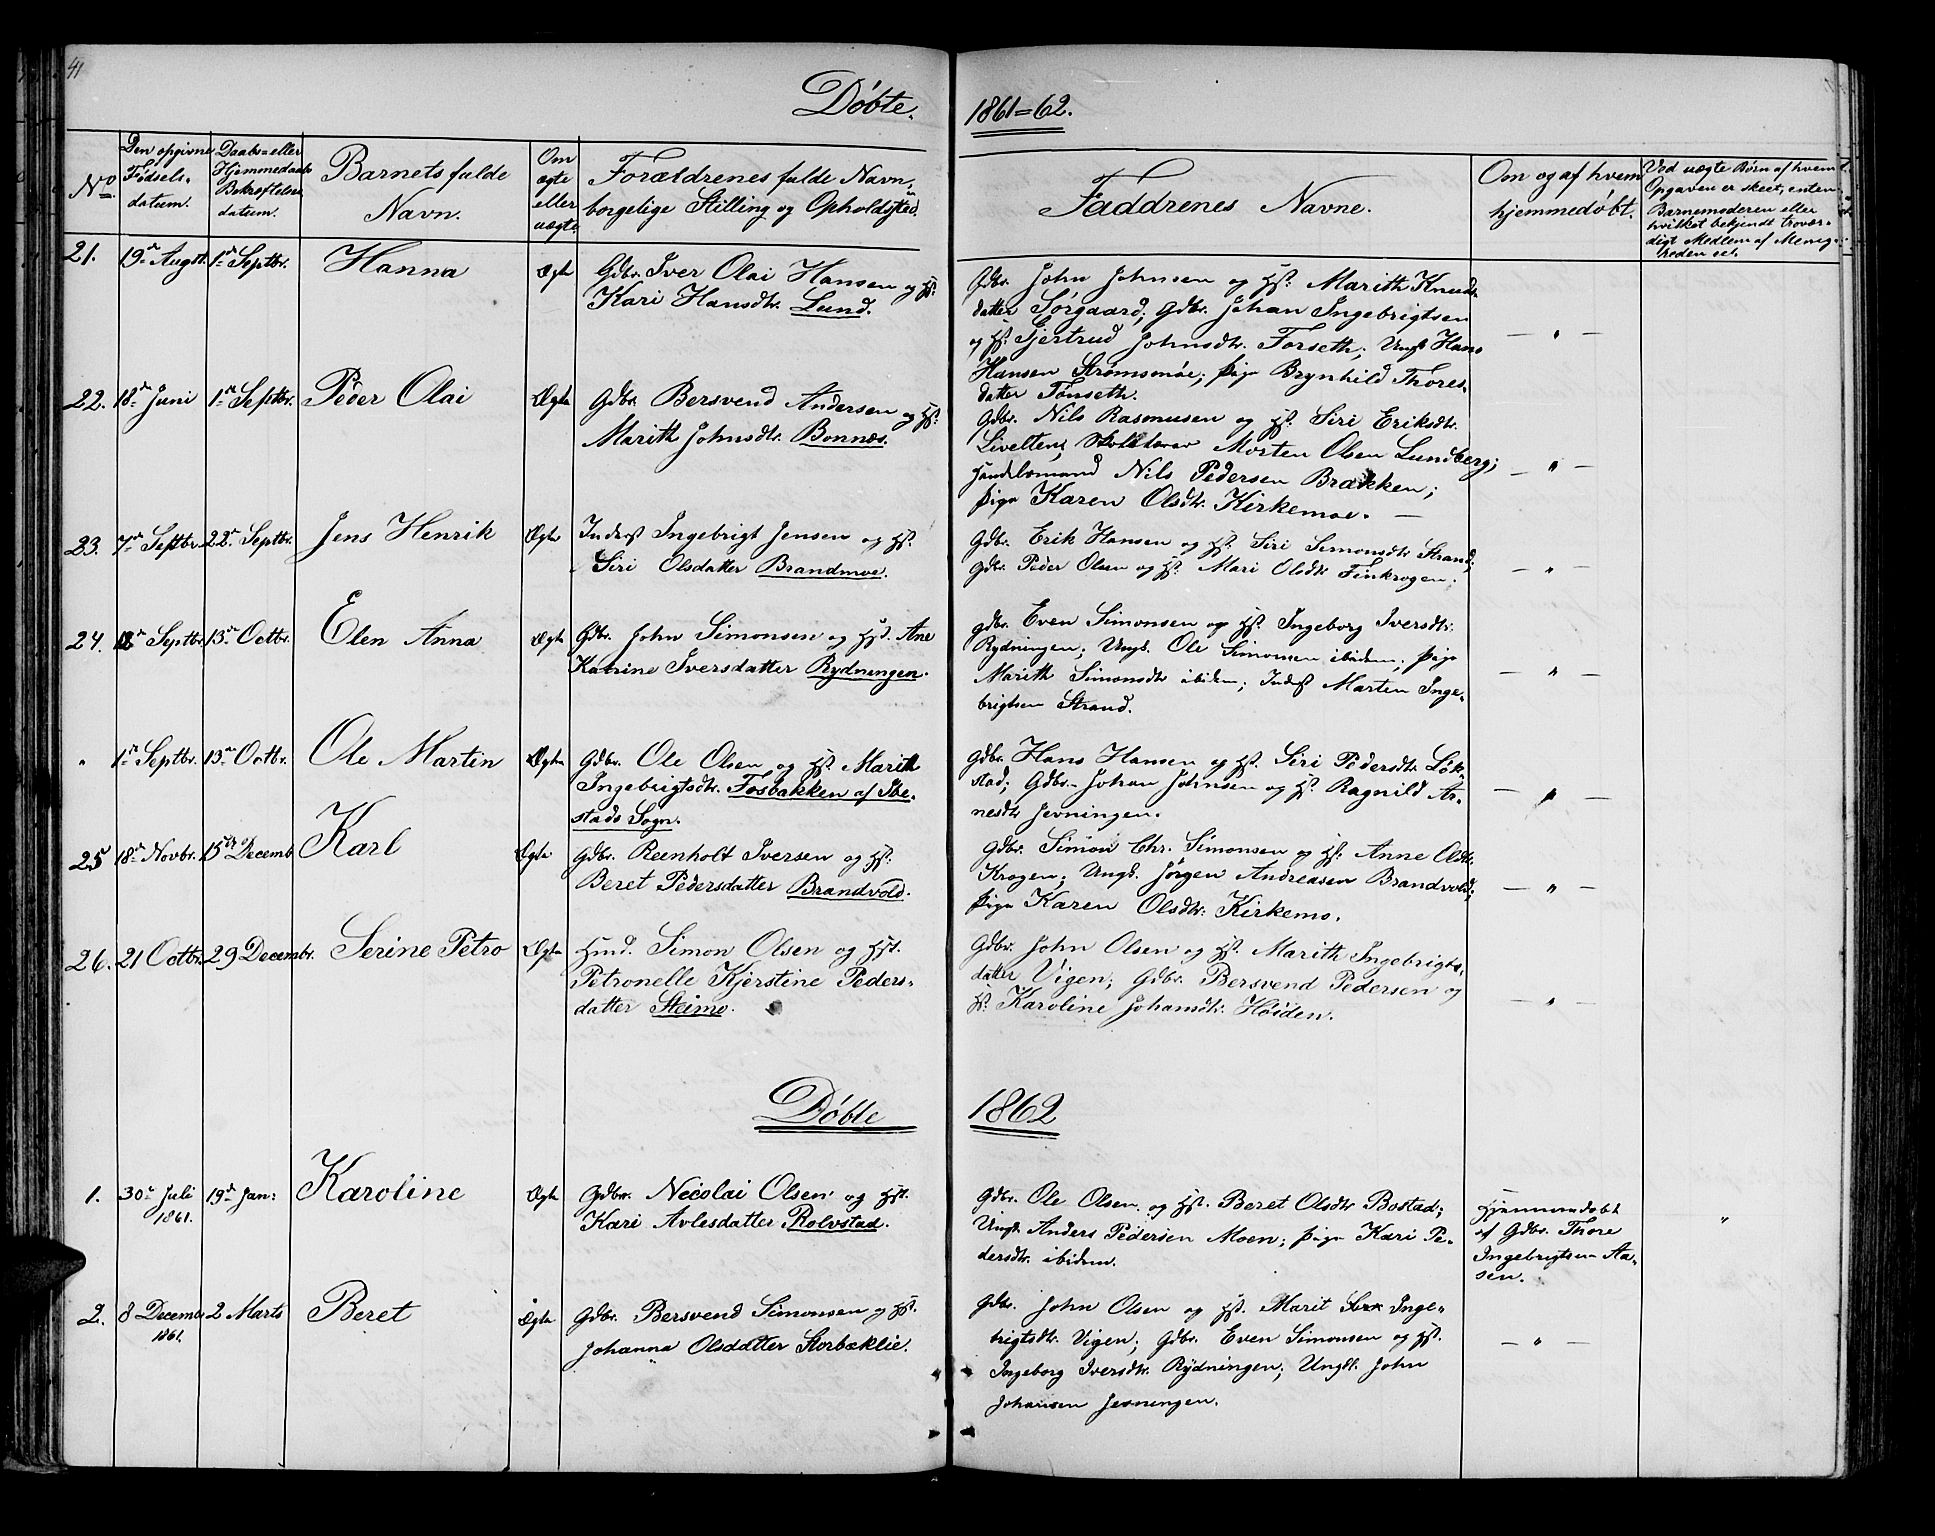 41
Döbte.
1861=62.
No.
Den opgivne Fødsels- datum.
Daabs- eller Hjemmedaabs Bekræftelses datum.
Barnets fulde Navn.
Om ægte eller uægte
Forældrenes fulde Navn, borgelige Stilling og Opholdssted.
Faddrenes Navne.
Om og af hvem hjemmedøbt.
Ved uægte Børn af hvem Opgaven er skeet, enten Barnemoderen eller hvilket bekjendt troværdigt Medlem af Menigheden etc.
21. 19de Augst. 1ste Septbr. Hanna Ægte Gdbr. Iver Olai Hansen og Hst.
Kari Hansdtr. Lund.
Gdbr. John Johnsen og Hst. Marith Knuds-
datter Sørgaard; Gdbr. Johan Ingebrigtsen
og Hst. Gjertrud Johnsdtr. Forseth; Ungk. Hans
Hansen Strømsmoe; Pige Brynhild Thores-
datter Tønseth.
— " —
22. 18de Juni 1ste Septbr. Peder Olai Ægte Gdbr. Bersvend Andersen og Hst.
Marith Johnsdtr. Bonnæs.
Gdbr. Nils Rasmusen og Hst. Siri Eriksdtr.
Livelten; Skolelærer Morten Olsen Lundberg;
Handelsmand Nils Pedersen Brækken;
Pige Karen Olsdtr. Kirkemoe. —
— " —
23. 7de Septbr. 22de Septbr. Jens Henrik Ægte Inderst Ingebrigt Jensen og Hst.
Siri Olsdatter Brandmoe.
Gdbr. Erik Hansen og Hst. Siri Simonsdtr Strand;
Gdbr. Peder Olsen og Hst. Mari Olsdtr Finkrogen;
— " —
24. Septbr. 13de Octbr. Elen Anna Ægte Gdbr. John Simonsen og Hst. Ane
Katrine Iversdatter Rydningen.
Gdbr. Even Simonsen og Hst. Ingeborg Iversdtr.
Rydningen; Ungk. Ole Simonsen ibidem; Pige
Marith Simonsdtr ibidem; Inderst Marten Inge-
brigtsen Strand.
— " —
" 1ste Septbr. 13de Octbr. Ole Martin Ægte Gdbr. Ole Olsen og Hst. Marith
Ingebrigtsdtr. Fosbakken af Ibe-
stads Sogn.
Gdbr. Hans Hansen og Hst. Siri Pedersdtr. Løk-
stad; Gdbr. Johan Johnsen og Hst. Ragnild Ar-
nesdtr Jevningen.
— " —
25 18de Novbr. 15de Decemb. Karl Ægte Gdbr. Reenholt Iversen og Hst.
Beret Pedersdatter Brandvold.
Gdbr. Simon Chr. Simonsen og Hst. Anne Olsdtr.
Krogen; Ungk. Jørgen Andreasen Brandvold;
Pige Karen Olsdtr. Kirkemo.
— " —
26. 21 Octbr. 29 Decembr. Serine Petro Ægte Hmd. Simon Olsen og Hst.
Petronelle Kjerstine Peders-
datter Steimo.
Gdbr. John Olsen og Hst. Marith Ingebrigts-
datter Vigen; Gdbr. Bersvend Pedersen og
Hst. Karoline Johansdtr. Høiden.
— " —
Döbte
1862
1. 30te Juli 1861. 19de Jan: Karoline Ægte Gdbr. Nicolai Olsen og Hst.
Kari Avlesdatter Rolvstad.
Gdbr. Ole Olsen og Hst. Beret Olsdtr Bostad;
Ungk. Anders Pedersen Moen; Pige Kari Pe-
dersdtr. ibidem.
Hjemmedøbt
af Gdbr. Thore
Ingebrigtsen Aa-
sen.
"
2. 8 Decembr 1861. 2 Marts Beret Ægte Gdbr. Bersvend Simonsen og Hst.
Johanna Olsdatter Storbæklie.
Gdbr. John Olsen og Hst. Marit Inge-
brigtsdtr. Vigen; Gdbr. Even Simonsen og Hst.
Ingeborg Iversdtr. Rydningen; Ungk. John
Johansen Jevningen.
— " —